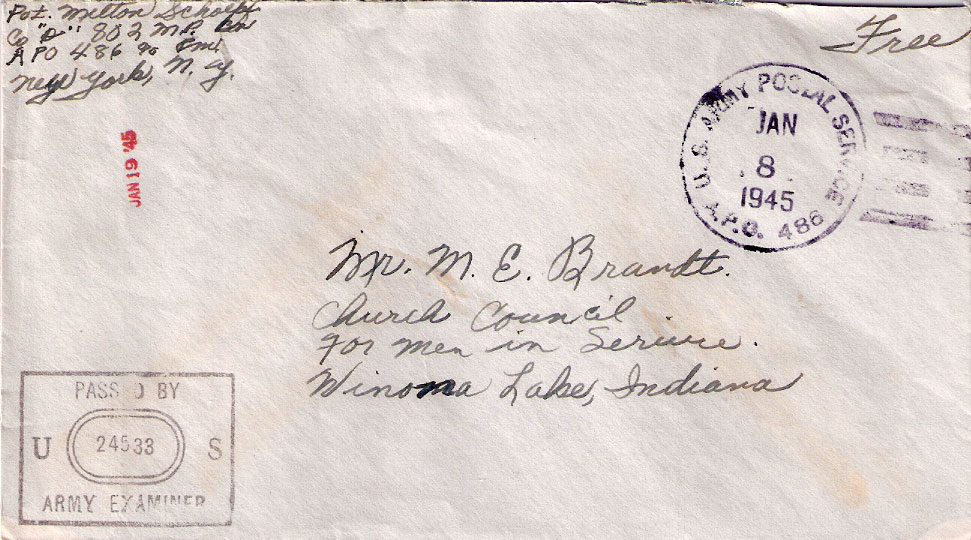 Pvt. Milton
Co "D" 802 M.P. Bn
APO 486 % P.M.
New York, N.Y.
Free
U.S. ARMY POSTAL SERVICE
JAN
8
1945
A.P.O. 486
JAN 19 '45
Mr. M. E. Brandt.
Church Council
For Men in Service.
Winona Lake, Indiana
PASSED BY
U 24533 S
ARMY EXAMINER